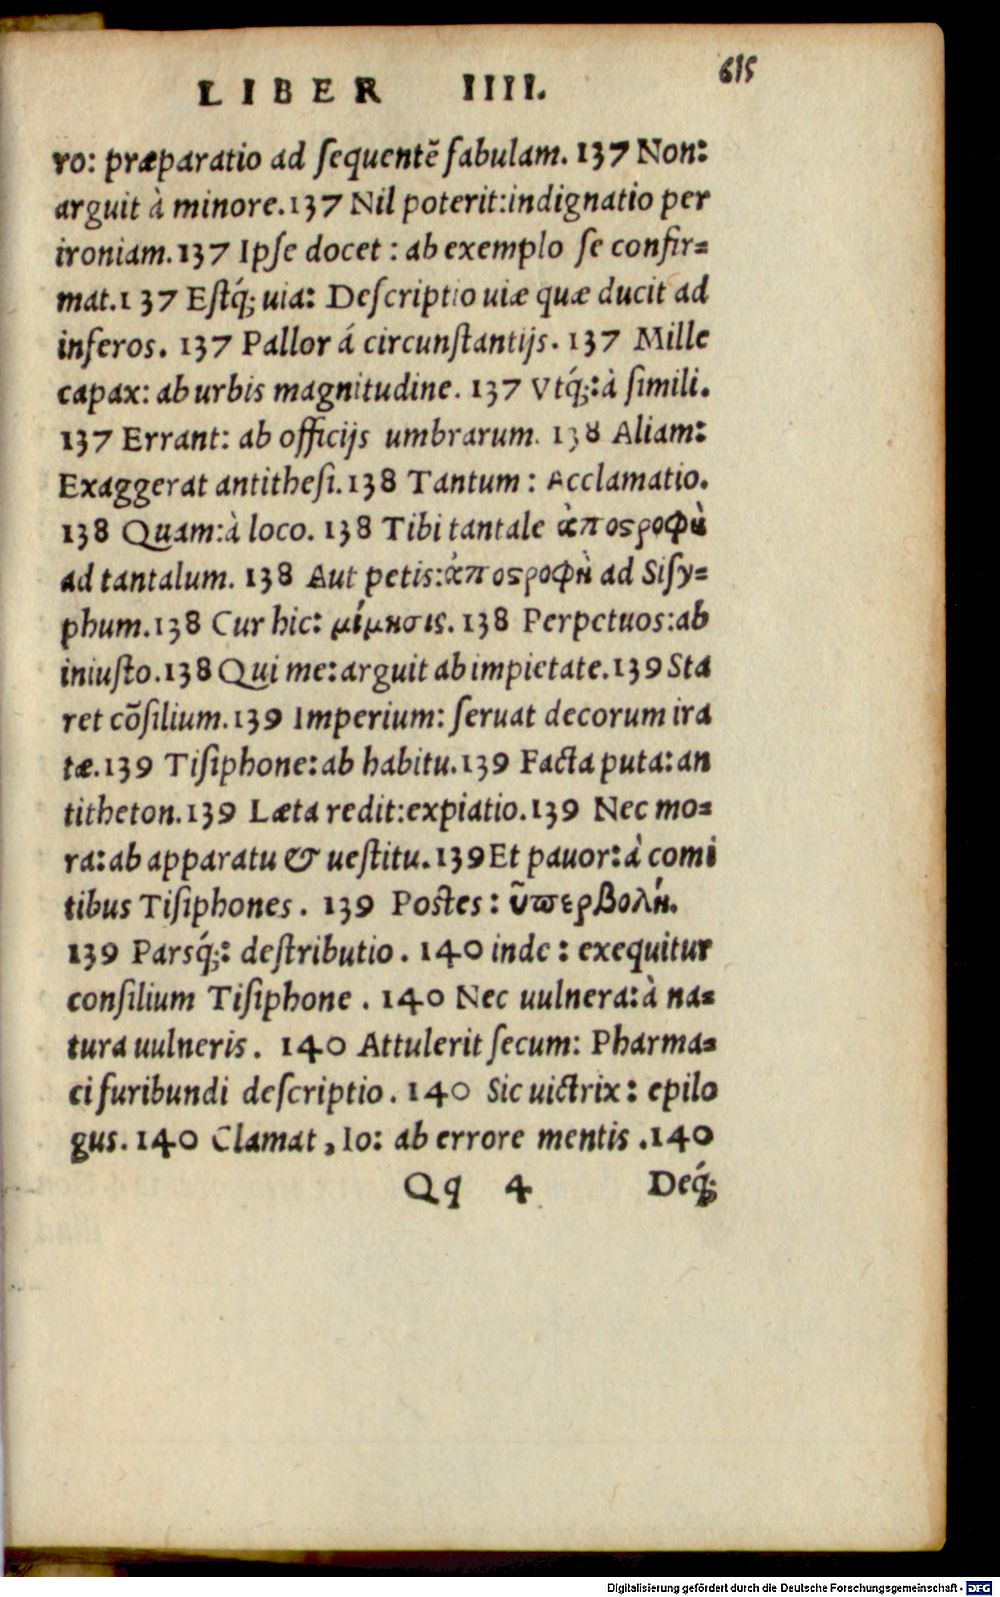 LIBER IIII. 615
ro: præparatio ad ſequentẽ fabulam. 137 Non:
arguit à minore. 137 Nil poterit: indignatio per
ironiam. 137 Ipſe docet : ab exemplo ſe confir=
mat. 137 Eſtq́; uia: Deſcriptio uiæ quæ ducit ad
inferos. 137 Pallor á circunſtantijs. 137 Mille
capax: ab urbis magnitudine. 137 Vtq́;: à ſimili.
137 Errant: ab officijs umbrarum. 138 Aliam:
Exaggerat antitheſi. 138 Tantum : Acclamatio.
138 Quam: à loco. 138 Tibi tantale ἀποϛροφὴ
ad tantalum. 138 Aut petis: ἀποϛροφὴ ad Siſy=
phum. 138 Cur hic: μίμησις. 138 Perpetuos: ab
iniuſto. 138 Qui me: arguit ab impietate. 139 Sta
ret cõſilium. 139 Imperium: ſeruat decorum ira
tæ. 139 Tiſiphone: ab habitu. 139 Facta puta: an
titheton. 139 Læta redit: expiatio. 139 Nec mo=
ra: ab apparatu & ueſtitu. 139 Et pauor: à comi
tibus Tiſiphones. 139 Poſtes: ὑπερβολή.
139 Parsq́;: deſtributio. 140 inde: exequitur
conſilium Tiſiphone. 140 Nec uulnera: à na=
tura uulneris. 140 Attulerit ſecum: Pharma=
ci furibundi deſcriptio. 140 Sic uictrix: epilo
gus. 140 Clamat, Io: ab errore mentis. 140
Qq 4 Deq́;
Digitalisierung gefördert durch die Deutsche Forschungsgemeinschaft - DFG